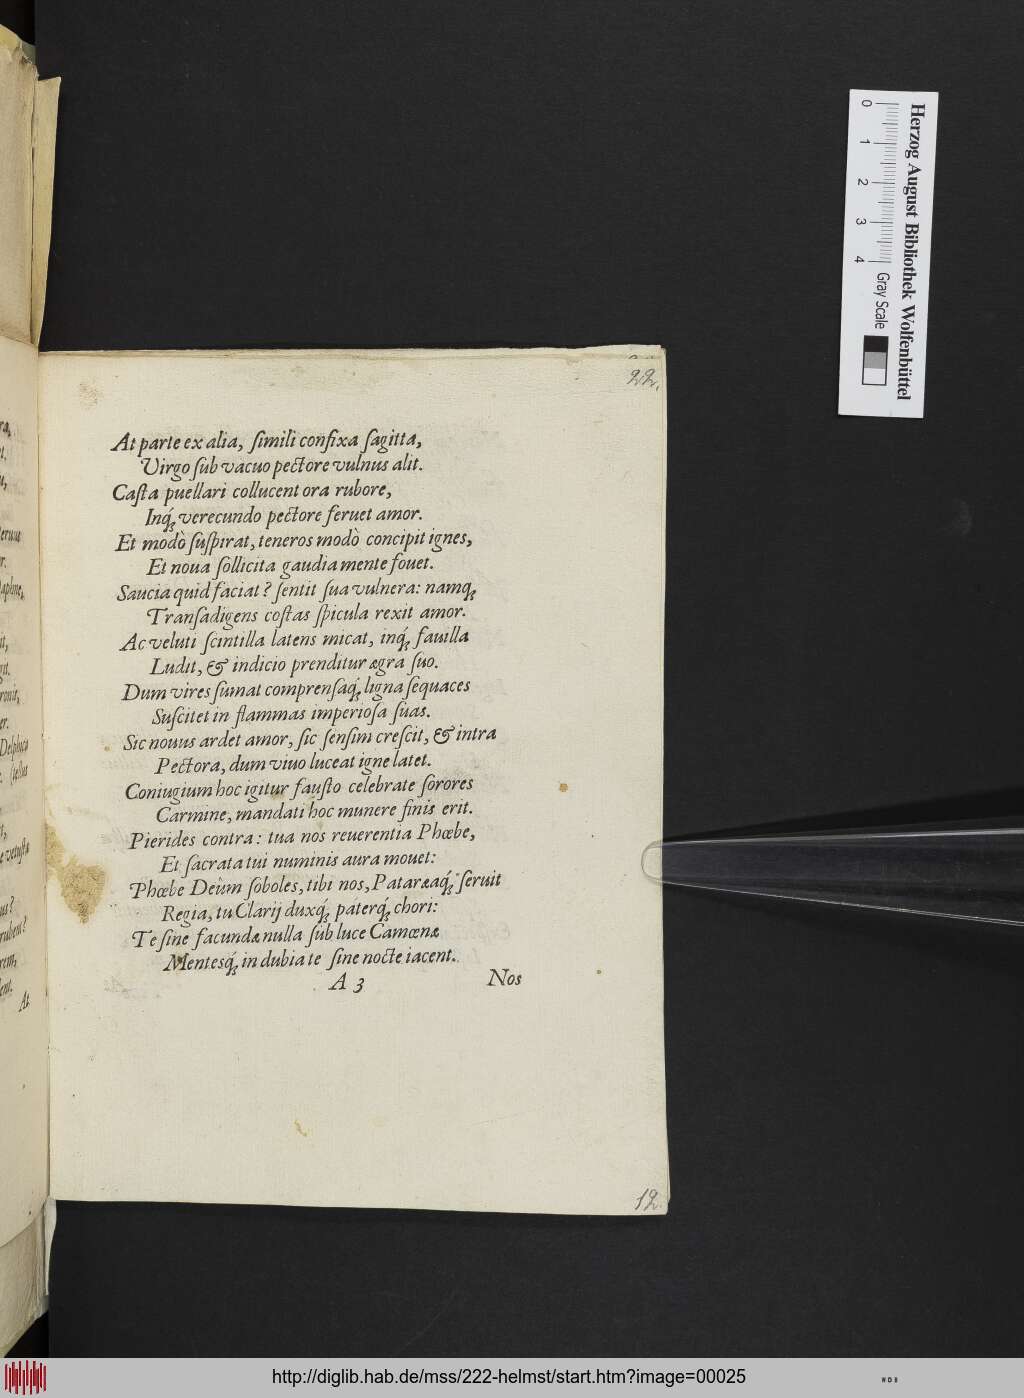 22.
At parte ex alia, ſimili confixa ſagitta,
Virgo ſub vacuo pectore vulnus alit.
Caſta puellari collucent ora rubore,
Inq́; verecundo pectore feruet amor.
Et modò ſuſpirat, teneros modò concipit ignes,
Et noua ſollicita gaudia mente fouet.
Saucia quid faciat? ſentit ſua vulnera: namq;
Tranſadigens coſtas ſpicula rexit amor.
Ac veluti ſcintilla latens micat, inq́; fauilla
Ludit, & indicio prenditur ægra ſuo.
Dum vires ſumat comprenſaq́; ligna ſequaces
Suſcitet in flammas imperioſa ſuas.
Sic nouus ardet amor, ſic ſenſim creſcit, & intra
Pectora, dum viuo luceat igne latet.
Coniugium hoc igitur fauſto celebrate ſorores
Carmine, mandati hoc munere finis erit.
Pierides contra: tua nos reuerentia Phœbe,
Et ſacrata tui numinis aura mouet:
Phœbe Deûm ſoboles, tibi nos, Pataræaq́; ſeruit
Regia, tu Clarij duxq́; paterq́; chori:
Te ſine facundæ nulla ſub luce Camœnæ
Mentesq́; in dubia te ſine nocte iacent.
A 3 Nos
12.
At
Herzog August Bibliothek Wolfenbüttel
0 1 2 3 4
Gray Scale
http://diglib.hab.de/mss/222-helmst/start.htm?image=00025